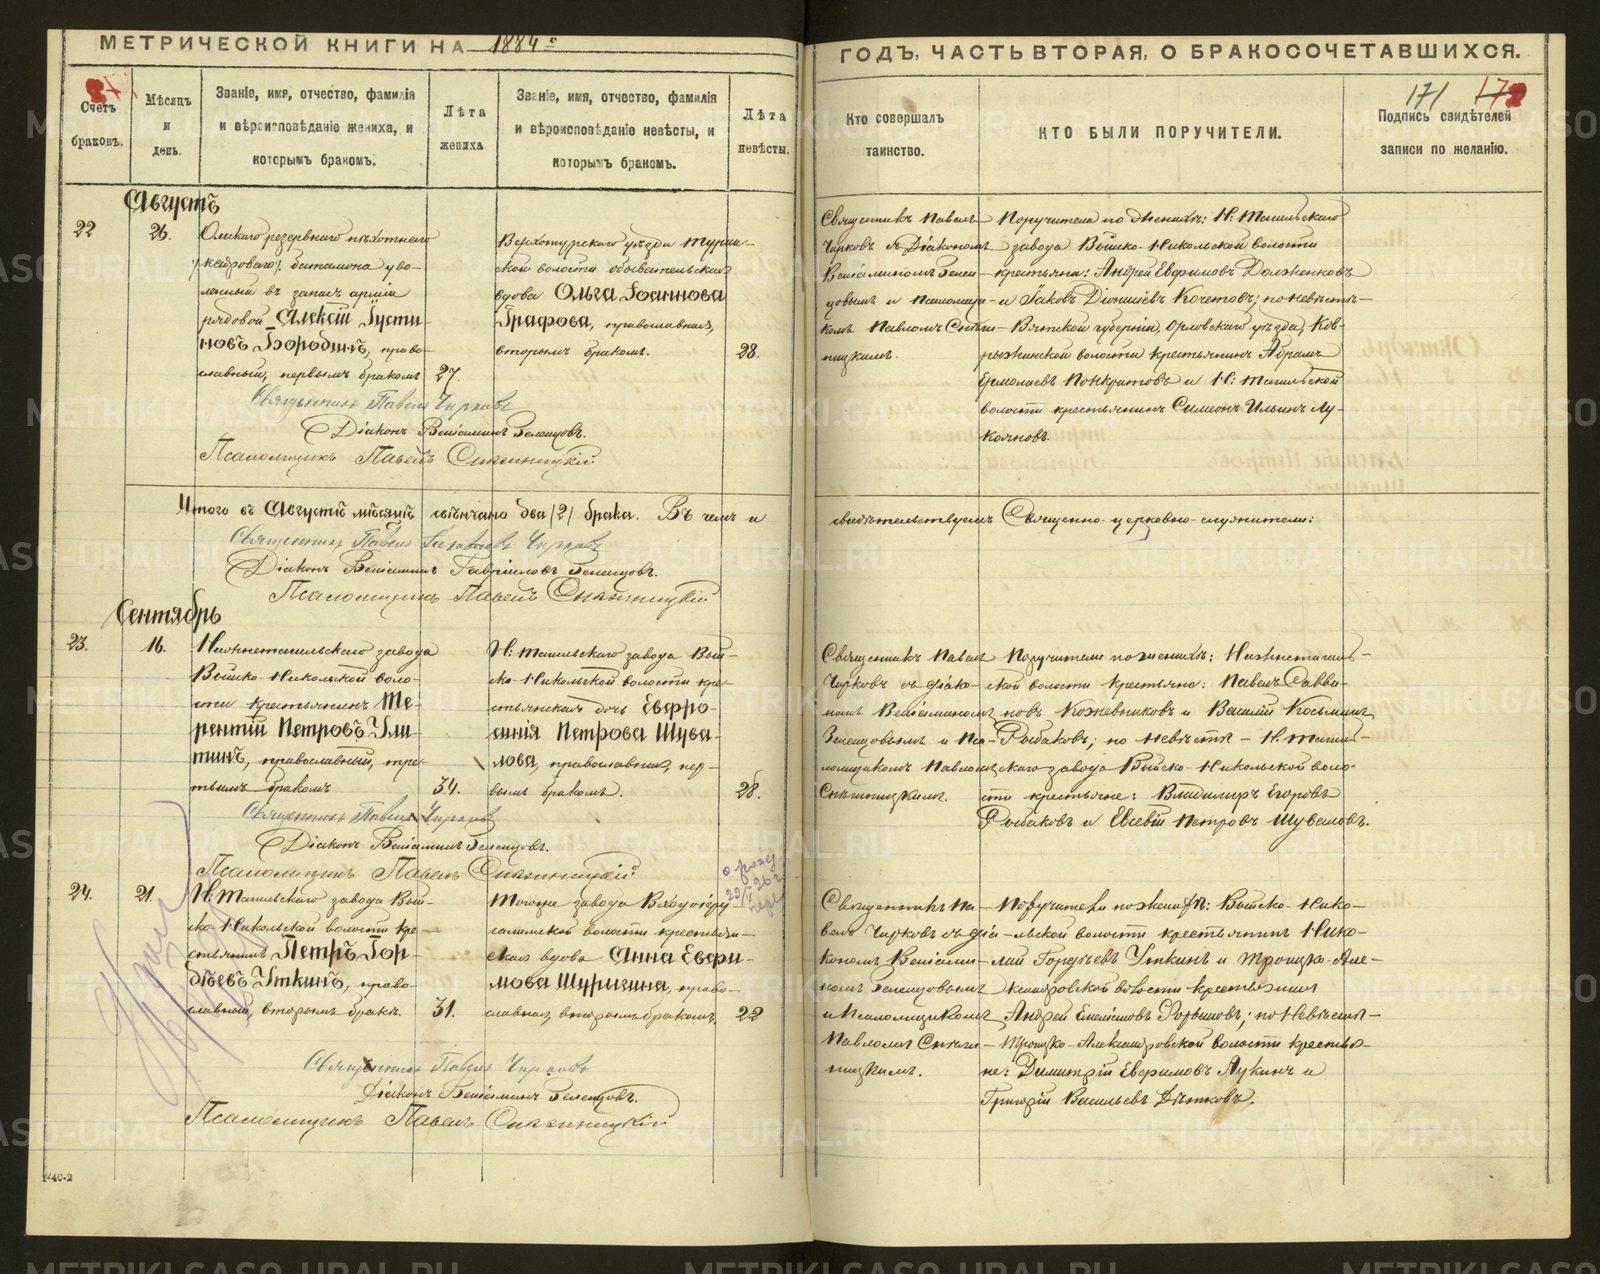 МЕТРИЧЕСКОЙ КНИГИ НА 1884 г
ГОДЪ, ЧАСТЬ ВТОРАЯ, О БРАКОСОЧЕТАВШИХСЯ.
171
Счетъ браковъ.
Мѣсяцъ и день.
Званіе, имя, отчество, фамилія и вѣроисповѣданіе жениха, и которымъ бракомъ.
Лѣта жениха
Званіе, имя, отчество, фамилія и вѣроисповѣданіе невѣсты, и которымъ бракомъ.
Лѣта невѣсты.
Кто совершалъ таинство.
КТО БЫЛИ ПОРУЧИТЕЛИ.
Подпись свидѣтелей записи по желанію.
Августъ
22
26.
Омскаго резервнаго пѣхотнаго
/кадроваго/ баталіона уво-
ленный въ запасъ арміи
рядовой Алексій Іусти-
новъ Бородинъ, право-
славный, первымъ бракомъ
27.
Верхотурскаго уѣзда Турин-
ской волости обывательская
вдова Ольга Іоаннова
Графова, православная,
вторымъ бракомъ.
28.
Священникъ Павелъ
Чирковъ съ Діакономъ
Веніаминомъ Зелен-
цовымъ и Псаломщи-
комъ Павломъ Снѣги-
ницкимъ.
Поручители по женихѣ: Н: Тагильскаго
завода Выйско-Никольской волости
крестьяне: Андрей Евфимовъ Долженковъ
и Іаковъ Діонисіевъ Кочетовъ; по невѣстѣ-
Вятской губерніи, Орловскаго уѣзда, Ков-
рыжинской волости крестьянинъ Абрамъ
Ермолаевъ Понкратовъ и Н: Тагильской
волости крестьянинъ Симеонъ Ильинъ Лу-
кояновъ.
Священникъ Павелъ Чирковъ
Діаконъ Веніаминъ Зеленцовъ.
Псаломщикъ Павелъ Снѣгиницкій
Итого въ Августѣ мѣсяцѣ свѣнчано два /2/ брака. Въ чемъ и
свидѣтельствуемъ Священно-церковно-служители:
Священникъ Павелъ Чирковъ
Діаконъ Веніаминъ Гавріиловъ Зеленцовъ.
Псаломщикъ Павелъ Снѣгиницкій
Сентябрь
23.
16.
Нижнетагильскаго завода
Выйско-Никольской воло-
сти крестьянинъ Те-
рентій Петровъ Ули-
тинъ, православный, тре-
тьимъ бракомъ
34.
Н: Тагильскаго завода Вый-
ско-Никольской волости кре-
стьянская дочь Евфро-
синія Петрова Шува-
лова, православная, пер-
вымъ бракомъ.
28.
Священникъ Павелъ
Чирковъ съ діако-
номъ Веніаминомъ
Зеленцовымъ и Пса-
ломщикомъ Павломъ
Снѣгиницкимъ.
Поручители по женихѣ: Нижнетагиль-
ской волости крестьяне: Павелъ Савви-
новъ Кожевниковъ и Василій Косьминъ
Рыбаковъ; по невѣстѣ - Н: Тагиль-
скаго завода Выйско-Никольской воло-
сти крестьяне: Владиміръ Егоровъ
Рыбаковъ и Евсевій Петровъ Шуваловъ.
Священникъ Павелъ Чирковъ
Діаконъ Веніаминъ Зеленцовъ.
Псаломщикъ Павелъ Снѣгиницкій
24.
21.
Н: Тагильскаго завода Вый-
ско-Никольской волости кре-
стьянинъ Петръ Гор-
дѣевъ Уткинъ, право-
славный, вторымъ бракъ.
31.
Тогоже завода
волости крестьян-
ская вдова Анна Евфи-
мова Шурыгина, право-
славная, вторымъ бракомъ.
22
Священникъ Па-
велъ Чирковъ съ діа-
кономъ Веніами-
номъ Зеленцовымъ
и Псаломщикомъ
Павломъ Снѣги-
ницкимъ.
Поручители по женихѣ: Выйско-Нико-
льской волости крестьянинъ Нико-
лай Гордѣевъ Уткинъ и Троицко-Але-
ксандровской волости крестьянинъ
Андрей Емеліановъ; по невѣстѣ-
Троицко-Александровской волости крестья-
не: Димитрій Евфимовъ Лукинъ и
Григорій Васильевъ Дѣтковъ.
Священникъ Павелъ Чирковъ
Діаконъ Веніаминъ Зеленцовъ.
Псаломщикъ Павелъ Снѣгиницкій
METRIKI.GASO-URAL.RU